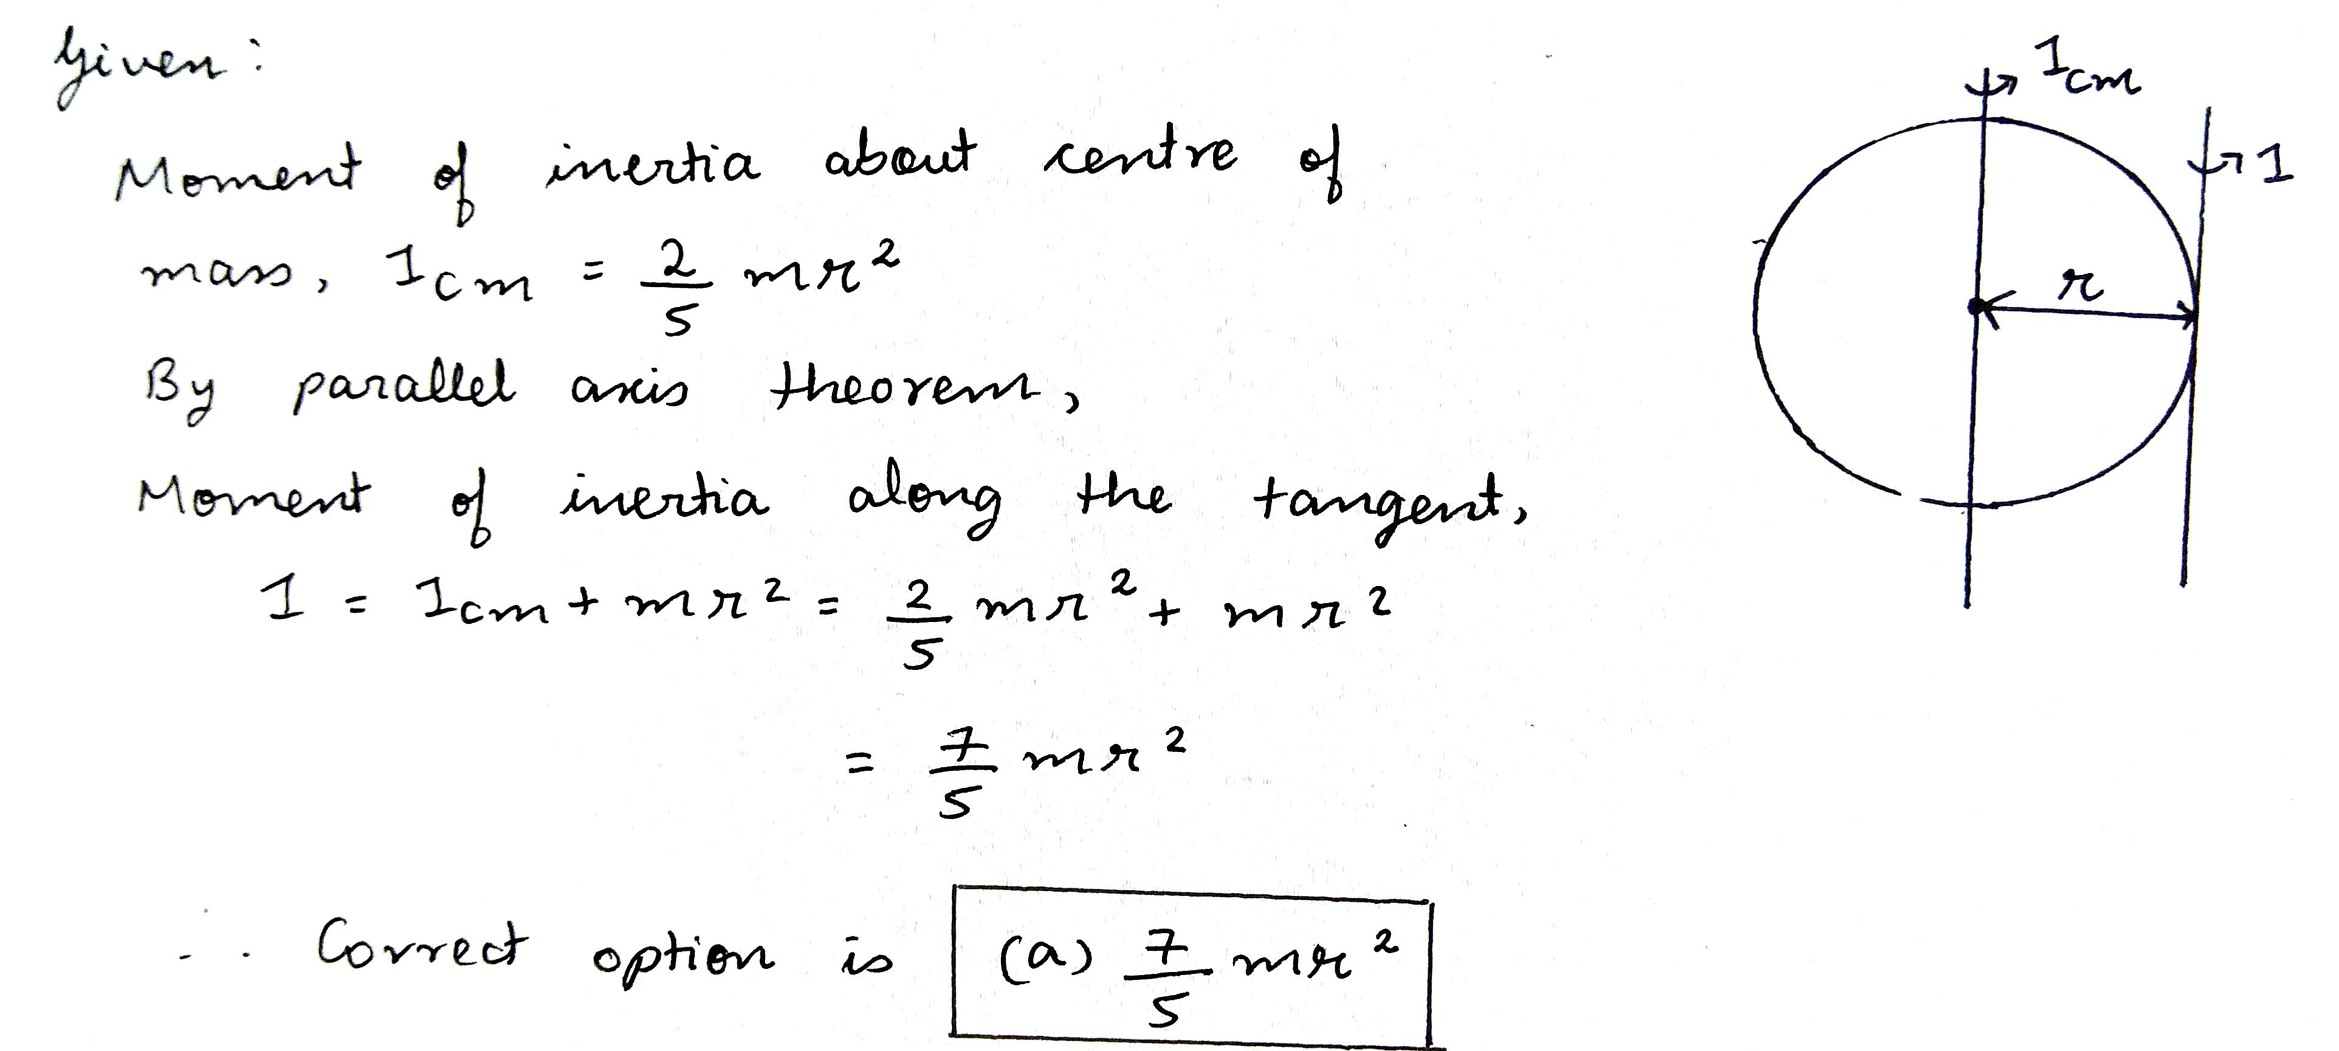 Given:
Moment of inertia about centre of
mass, Icm = 2/5 mr²
By parallel axis theorem,
Moment of inertia along the tangent,
I = Icm + mr² = 2/5 mr² + mr²
= 7/5 mr²
∴ Correct option is (a) 7/5 mr²
Icm
I
r